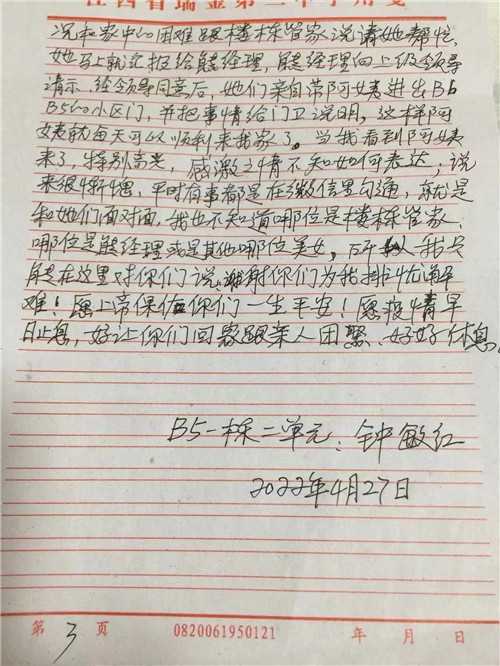 江西省瑞金第二中学用笺
况和家中的困难跟楼栋管家说请她帮忙,
她马上就汇报给熊经理,熊经理向上级领导
请示,经领导同意后,她们亲自带阿姨进出B6
B5的小区门,并把事情给门卫说明,这样阿
姨就每天可以顺利来我家了。当我看到阿姨
来了,特别高兴,感激之情不知如何表达;说
来很惭愧,平时有事都是在微信里勾通,就是
和她们面对面,我也不知道哪位是楼栋管家,
哪位是熊经理或是其他哪位美女,所以我只
能在这里对你们说:谢谢你们为我排忧解
难!愿上帝保佑你们一生平安!愿疫情早
日止息,好让你们回家跟亲人团聚、好好休息。
B5一栋二单元:钟敏红
2022年4月27日
第3页 0820061950121 年 月 日